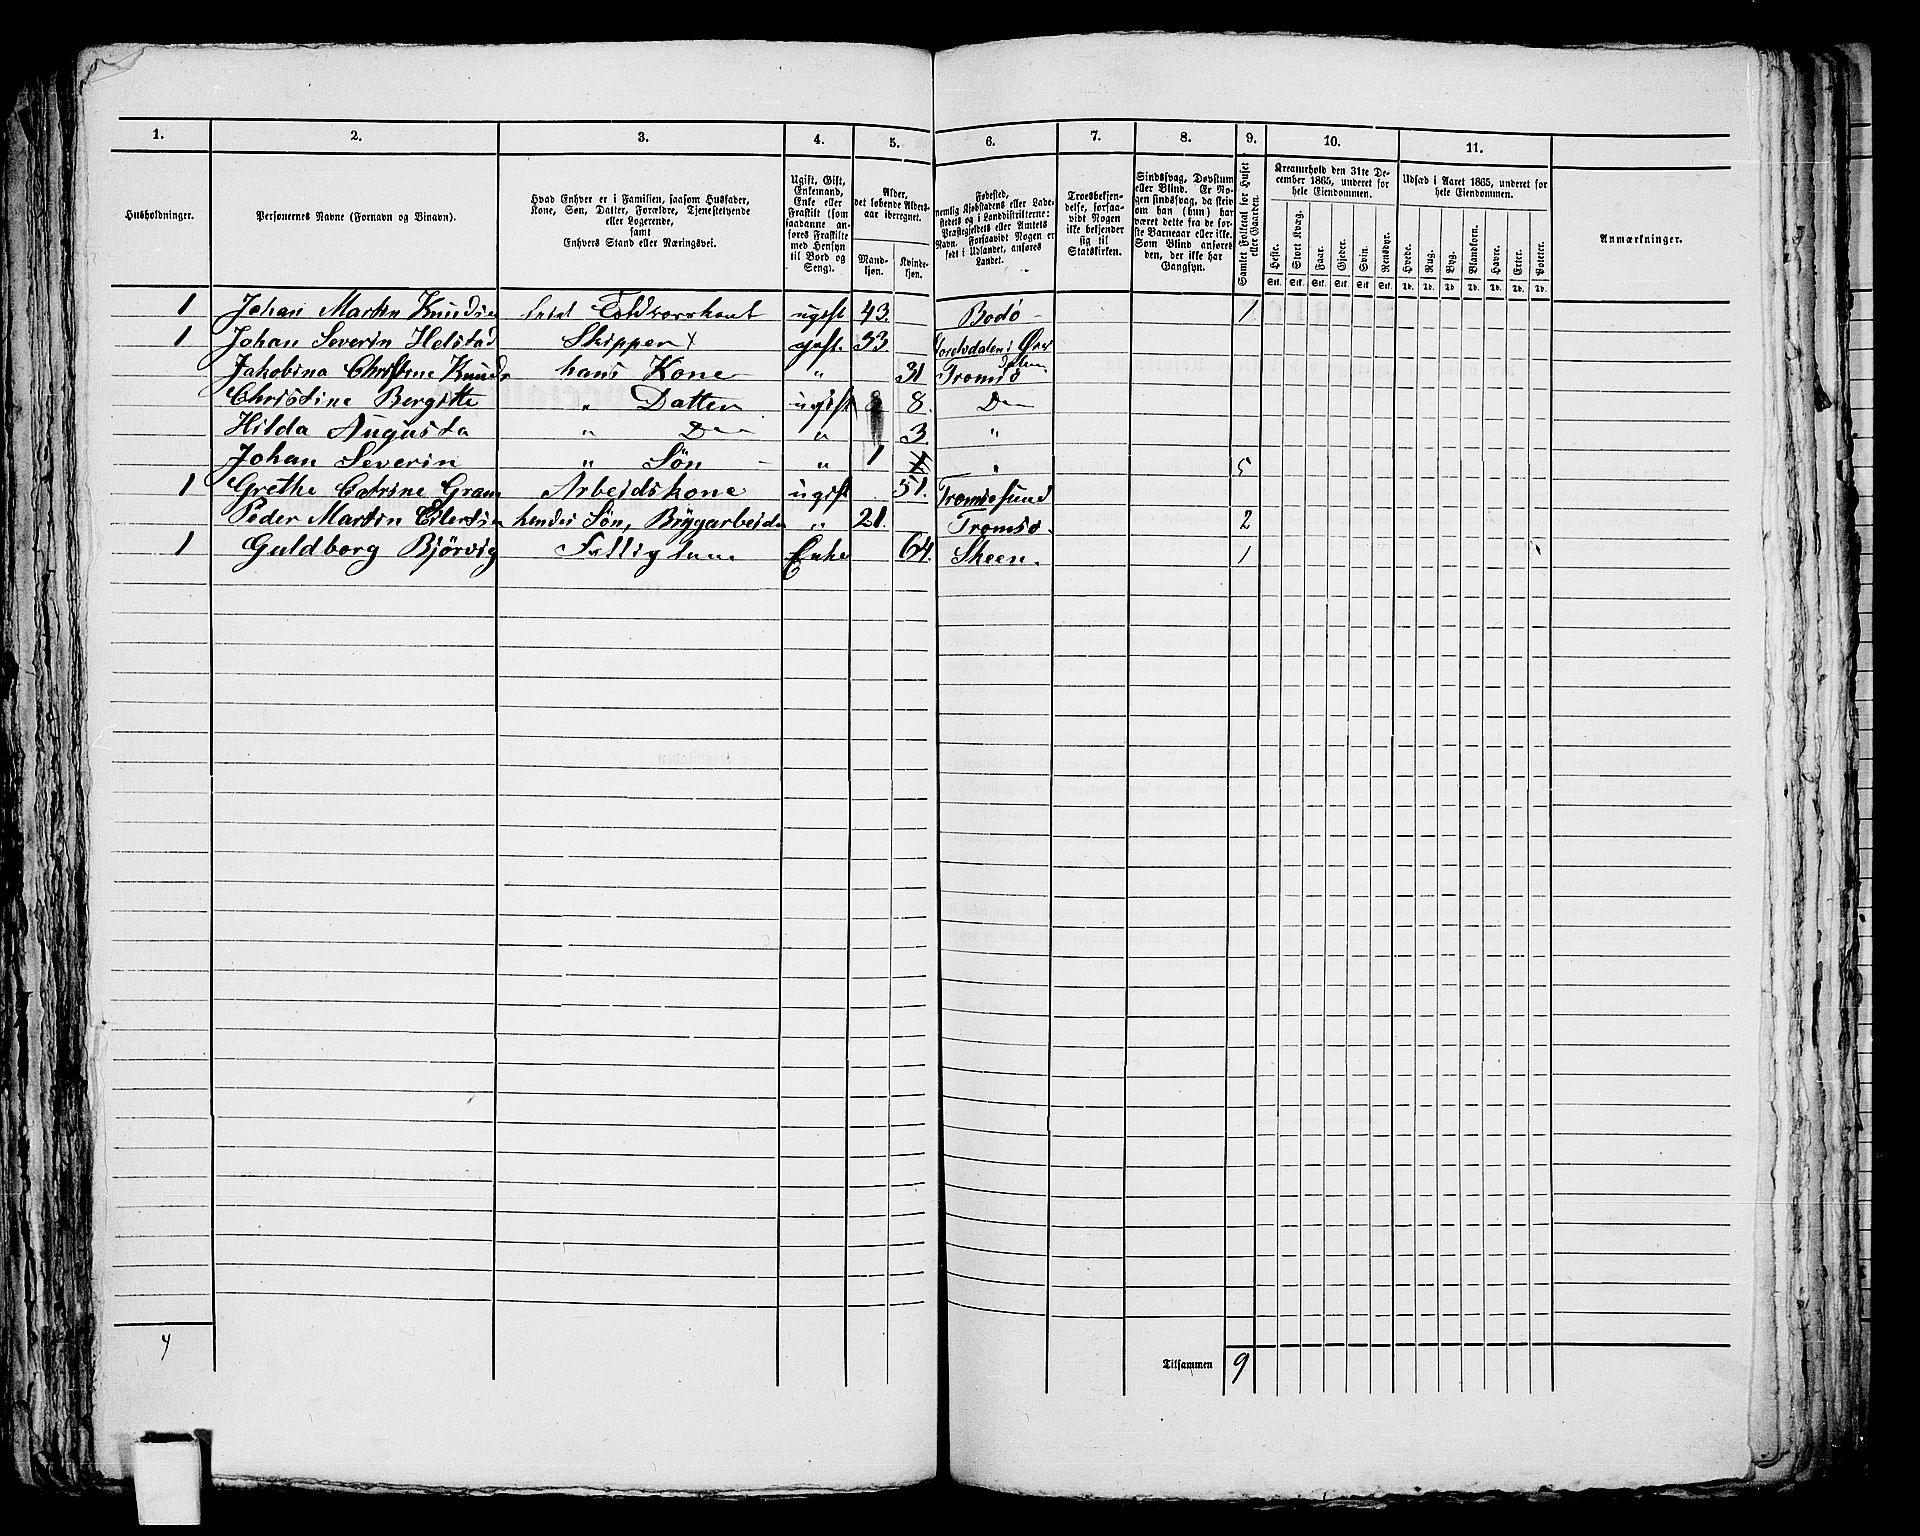 1. 2. 3. 4. 5. 6. 7. 8. 9. 10. 11.
Husholdninger.
Personernes Navne (Fornavn og Binavn).
Hvad Enhver er i Familien, saasom Husfader,
Kone, Søn, Datter, Forældre, Tjenestetyende
eller Logerende,
samt
Enhvers Stand eller Næringsvei.
Ugift, Gift,
Enkemand,
Enke eller
Fraskilt (som
saadanne an-
føres Fraskilte
med Hensyn
til Bord og
Seng).
Alder,
det løbende Alders-
aar iberegnet.
Mand-
kjøn.
Kvinde-
kjøn.
Fødested,
nemlig Kjøbstadens eller Lade-
stedets og i Landdistrikterne:
Præstegjeldets eller Amtets
Navn. Forsaavidt Nogen er
født i Udlandet, anføres
Landet.
Troesbekjen-
delse, forsaa-
vidt Nogen
ikke bekjender
sig til
Statskirken.
Sindssvag, Døvstum
eller Blind. Er No-
gen sindssvag, da skriv
om han (hun) har
været dette fra de før-
ste Barneaar eller ikke.
Som Blind anføres
den, der ikke har
Gangsyn.
Samlet Folketal for Huset
eller Gaarden.
Kreaturhold den 31te De-
cember 1865, underet for
hele Eiendommen.
Heste. Stort Kvæg. Faar. Gjeder. Svin. Rensdyr.
Stk. Stk. Stk. Stk. Stk. Stk.
Udsæd i Aaret 1865, underet for
hele Eiendommen.
Hvede. Rug. Byg. Blandkorn. Havre. Erter. Poteter.
Td. Td. Td. Td. Td. Td. Td.
Anmærkninger.
1 Johan Martin Knudsen Toldvovskont ugift 43. Bodø 1
1 Johan Severin Helstad Skipper gift. 33. i
Jakobina Christine Knuds hans Kone " 31 Tromsø
Christine Bergitte " Datter ugift 8. Do
Hilda Augusta " Do " 3. "
Johan Severin " Søn " 1 " 5
1 Grethe Catrine Gram Arbeidskone ugift 51. Tromsøsund
Peder Martin Eilertsen hendes Søn, Bryggarbeider " 21. Tromsø. 2
1 Guldborg Bjørvig Fattiglem Enke 64. Skeen. 1
4
Tilsammen 9